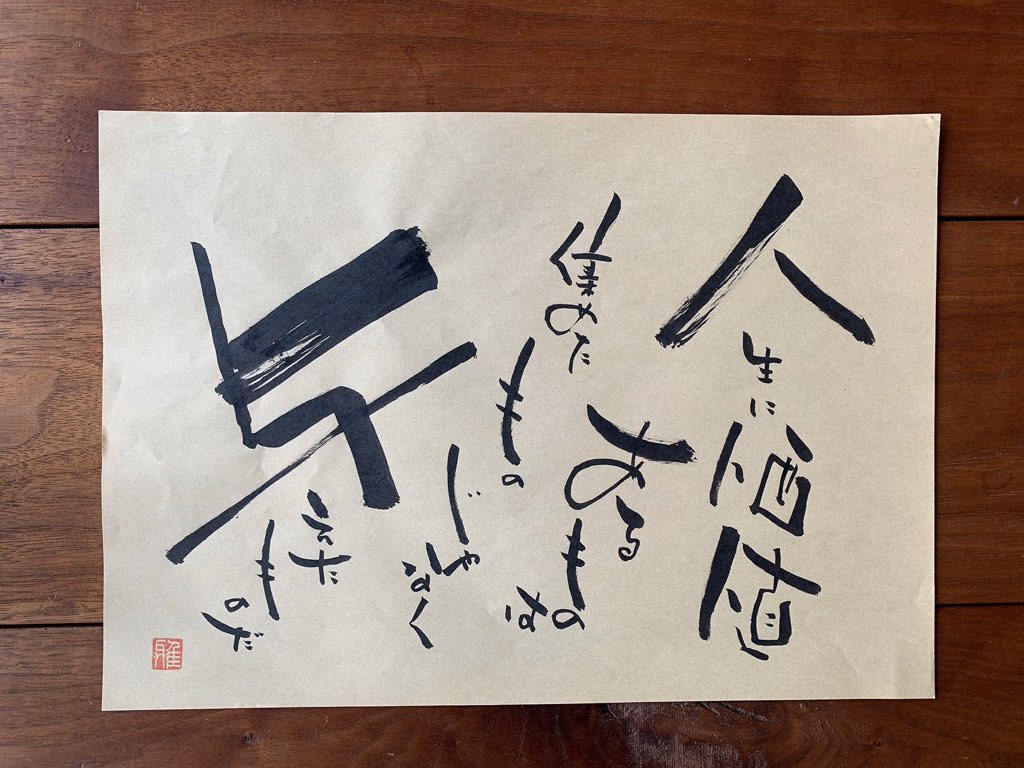 人生に価値
あるものは
集めたもの
じゃなく
与えた
ものだ
雅